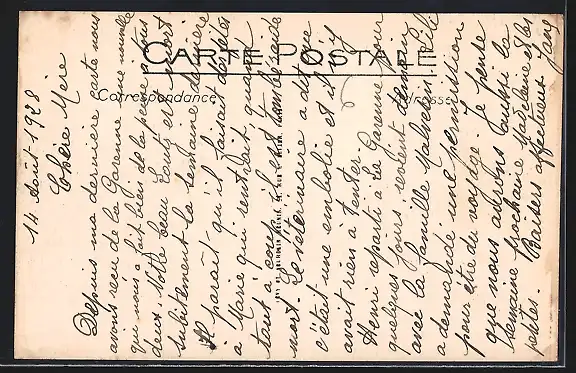 CARTE POSTALE
Correspondance
Adresse
14 Août 1928
Chère Mère
Depuis ma dernière carte nous
avons reçu de la Garenne une nouvelle
qui nous a fait bien de la peine à tous
deux. Notre beau Loup est mort
subitement la semaine dernière
Il paraît qu'il faisait des fêtes
à Marie qui rentrait quand
tout à coup il est tombé raide
mort. Le vétérinaire a dit que
c'était une embolie et qu'il n'y
avait rien à tenter.
Henri reparti à la Garenne pour
quelques jours revient demain
avec la famille Malvelin. Il
a demandé une permission
pour être du voyage. Je pense
que nous aurons aussi la
semaine prochaine Madeleine et les
petites. Baisers affectueux